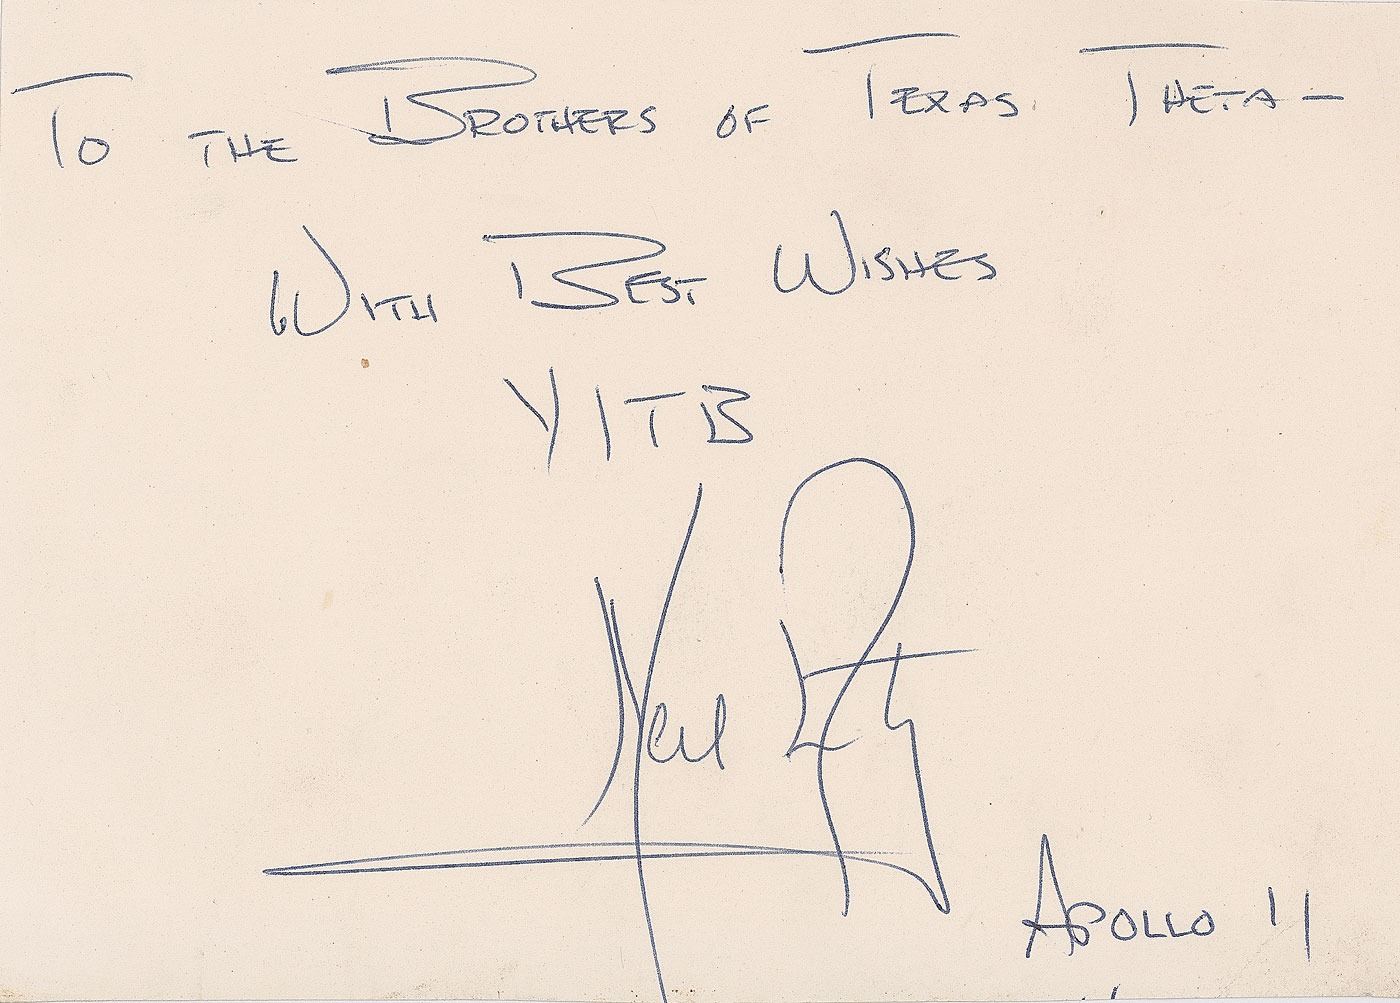 To THE BROTHERS OF TEXAS THETA —
WITH BEST WISHES
YITB
Neil
APOLLO 11